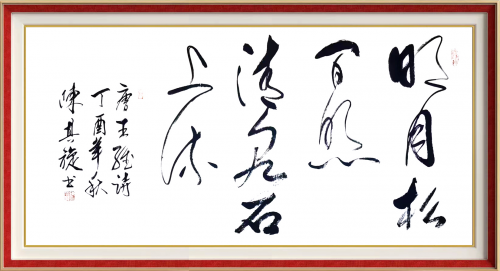 明月松
间照
清泉石
上流
唐王维诗
丁酉年秋
陳其旋书